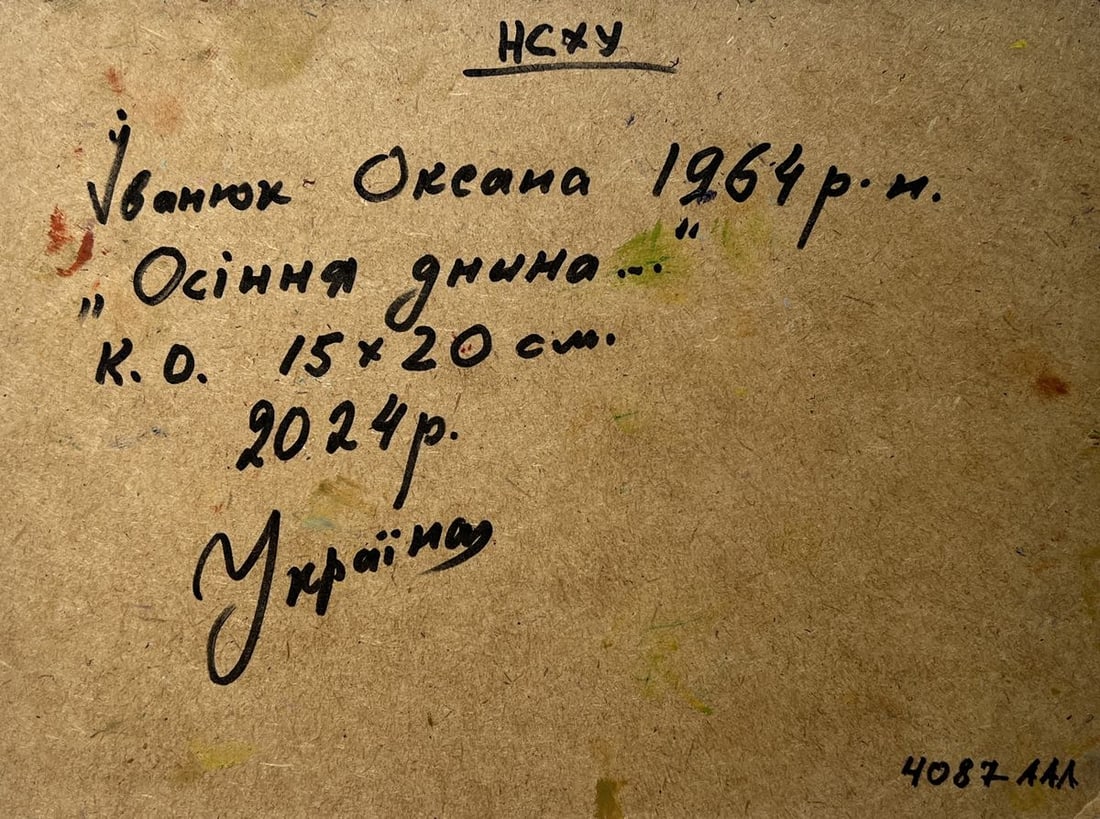 НСХУ
Іванюк Оксана 1964 р. н.
„Осіння днина..."
К. О. 15 x 20 см.
2024 р.
Україна
4087 ААЛ